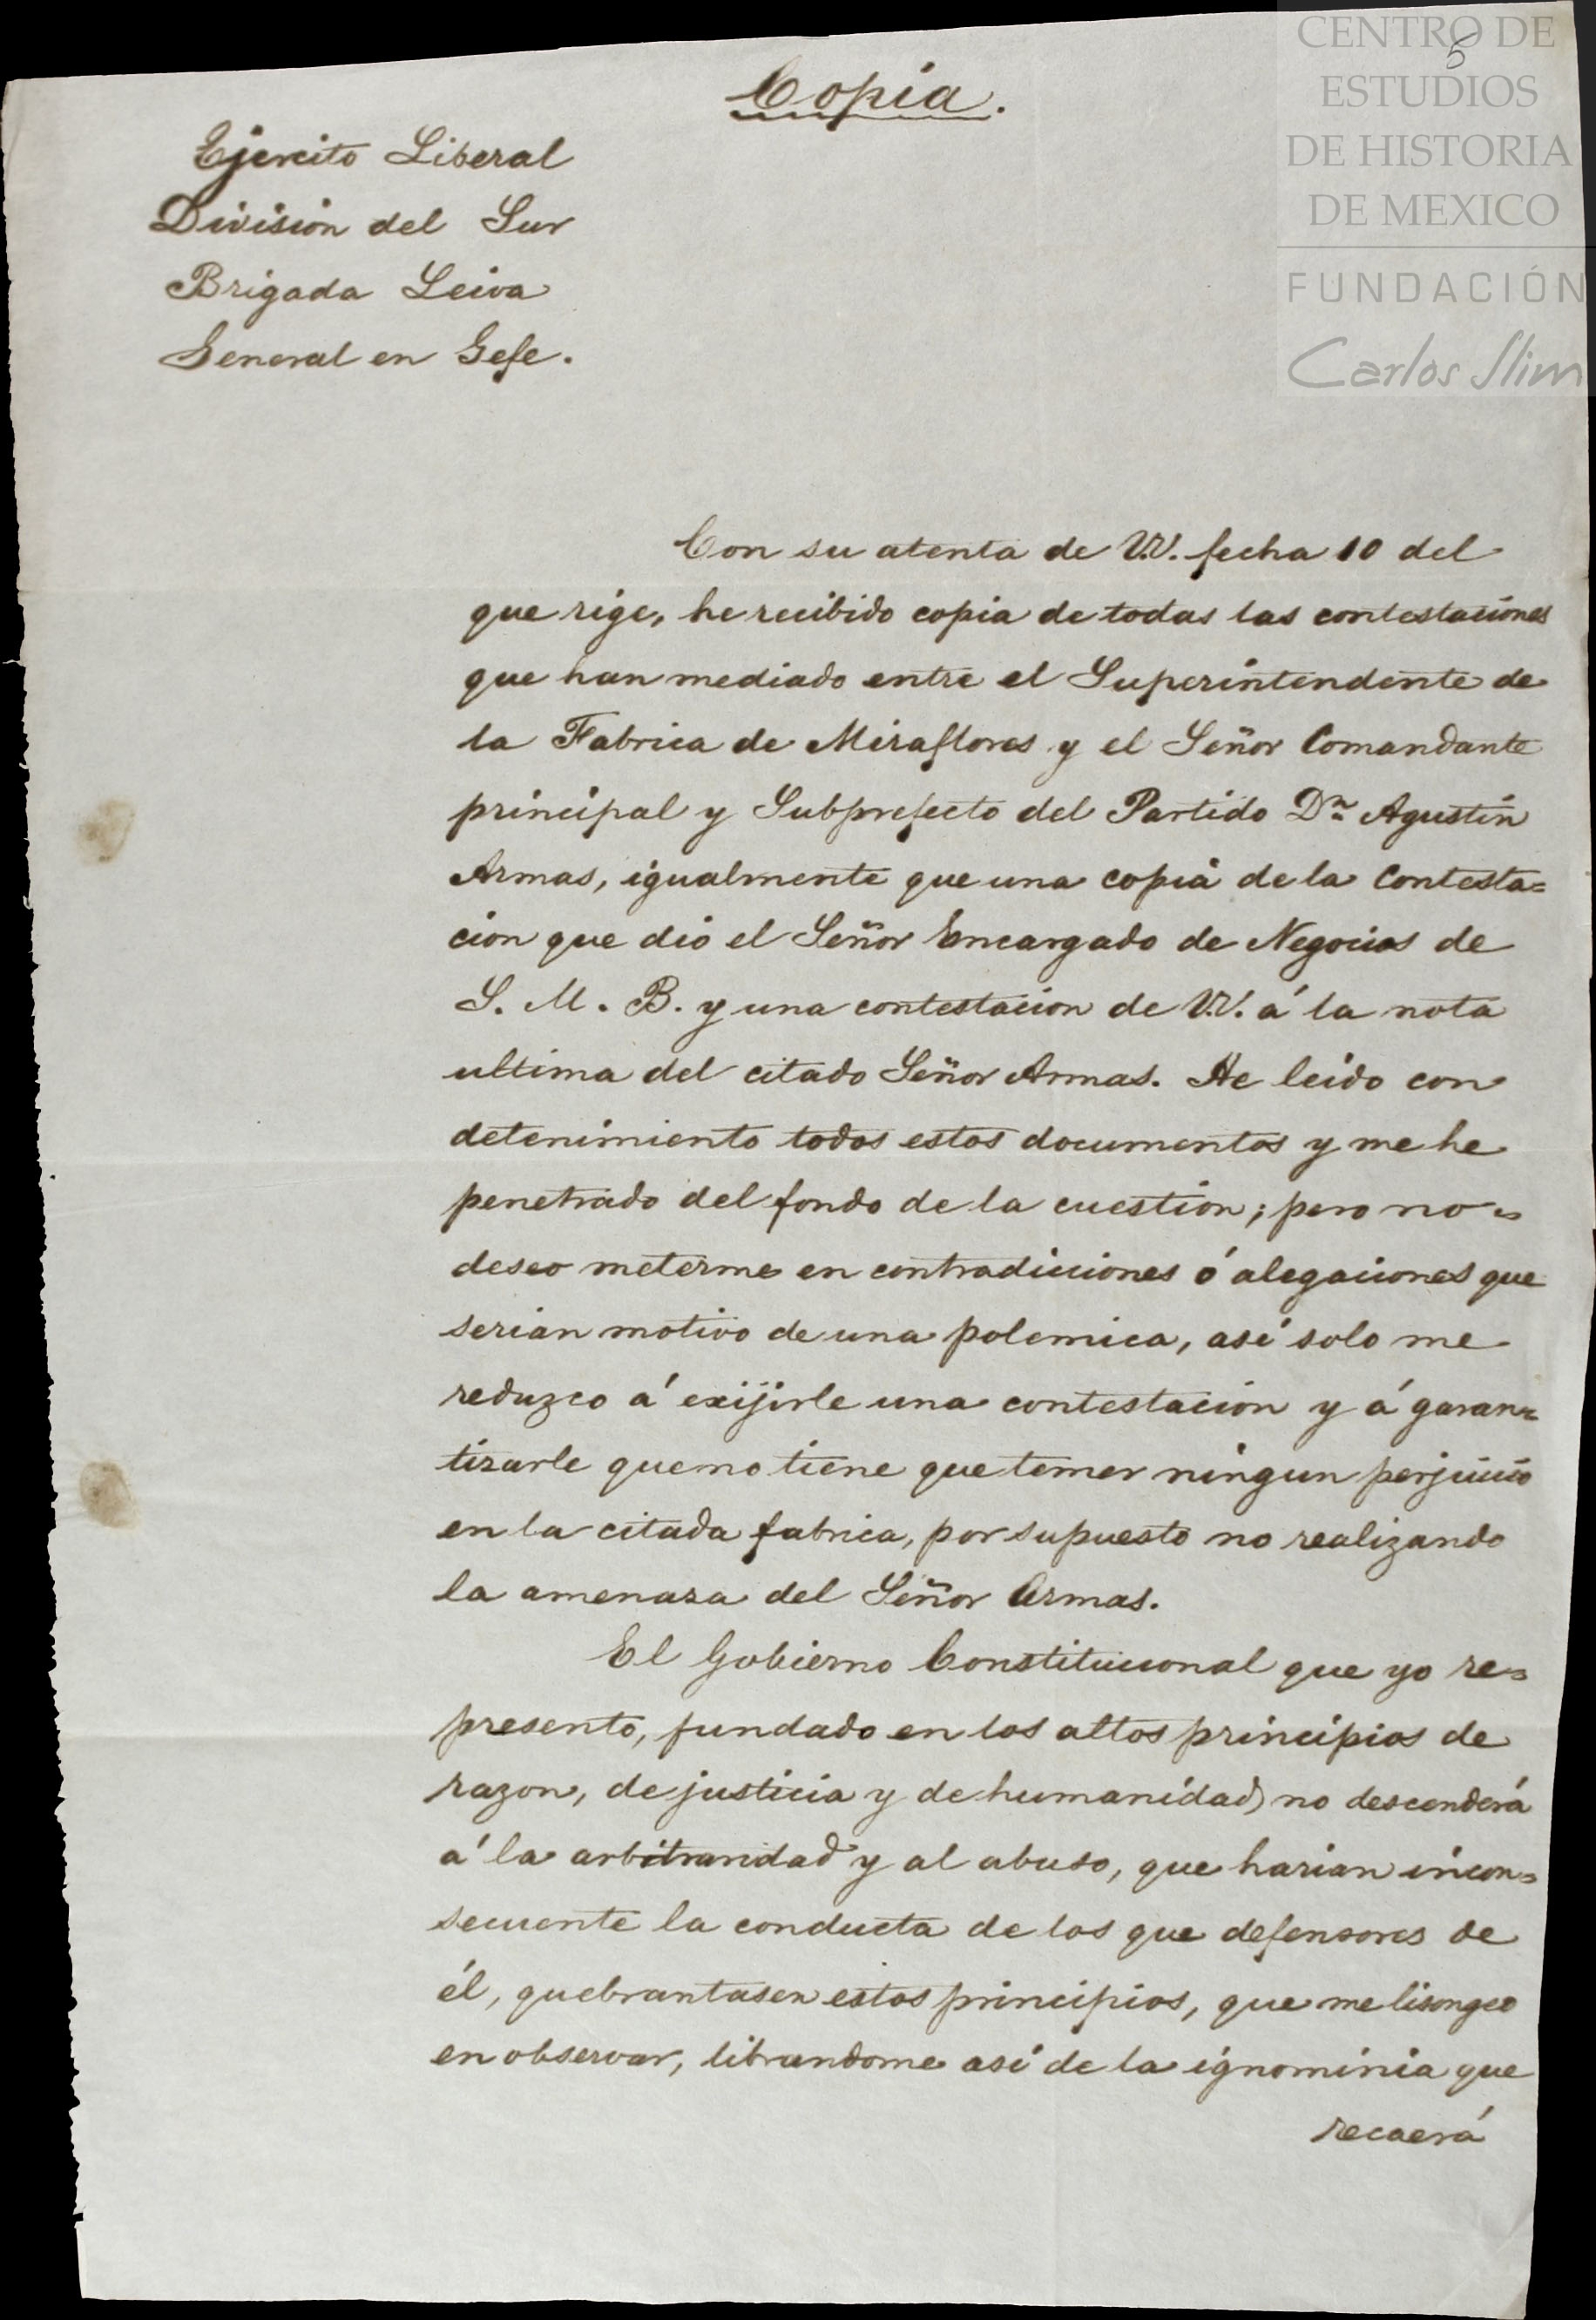 CENTRO DE
ESTUDIOS
DE HISTORIA
DE MEXICO
FUNDACIÓN
Carlos Slim
5
Copia.
Ejercito Liberal
División del Sur
Brigada Leiva
General en Gefe.
Con su atenta de VV. fecha 10 del
que rige, he recibido copia de todas las contestaciones
que han mediado entre el Superintendente de
la Fabrica de Miraflores y el Señor Comandante
principal y Subprefecto del Partido Dn Agustin
Armas, igualmente que una copia de la contesta=
cion que dió el Señor Encargado de Negocios de
S. M. B. y una contestacion de VV. á la nota
ultima del citado Señor Armas. He leido con
detenimiento todos estos documentos y me he
penetrado del fondo de la cuestion; pero no =
deseo meterme en contradicciones ó alegaciones que
serian motivo de una polemica, asi solo me
reduzco á exijirle una contestacion y á garan=
tizarle que no tiene que temer ningun perjuicio
en la citada fabrica, por supuesto no realizando
la amenaza del Señor Armas.
El Gobierno Constitucional que yo re=
presento, fundado en los altos principios de
razon, de justicia y de humanidad no descenderá
á la arbitraridad y al abuso, que harian incon=
secuente la conducta de los que defensores de
él, quebrantasen estos principios, que me lisongeo
en observar, librandome asi de la ignominia que
recaerá